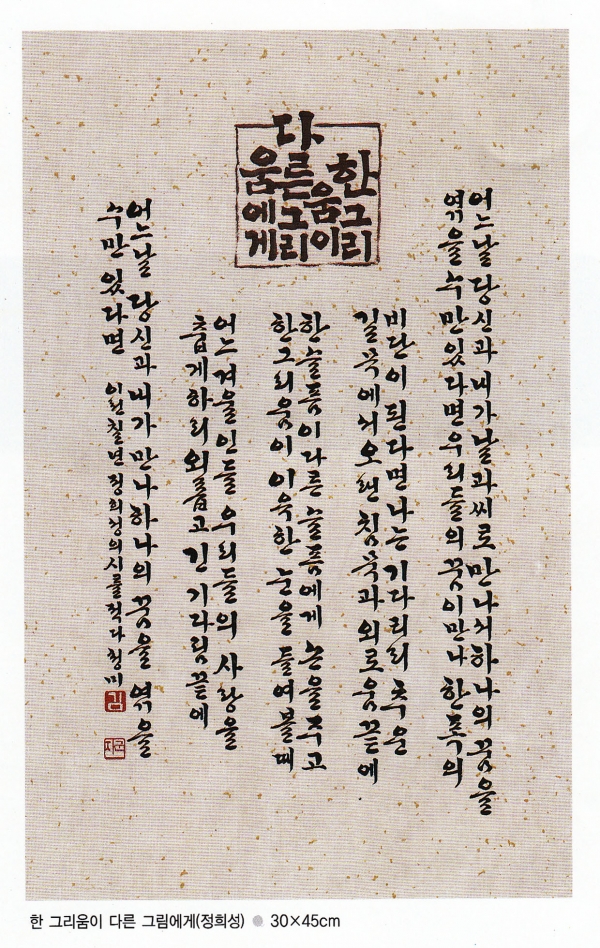 한 그리움이
다른 그리움에게
어느날 당신과 내가 날과 씨로 만나서 하나의 꿈을
엮을 수만 있다면 우리들의 꿈이 만나 한 폭의
비단이 된다면 나는 기다리리 추운
길목에서 오랜 침묵과 외로움 끝에
한 슬픔이 다른 슬픔에게 손을 주고
한 그리움이 이윽한 눈을 들여볼 때
어느 겨울인들 우리들의 사랑을
춥게 하리 외롭고 긴 기다림 끝에
어느날 당신과 내가 만나 하나의 꿈을 엮을
수만 있다면 이천칠년 정희성의 시를 적다 청미
김
한 그리움이 다른 그림에게(정희성) ● 30×45cm